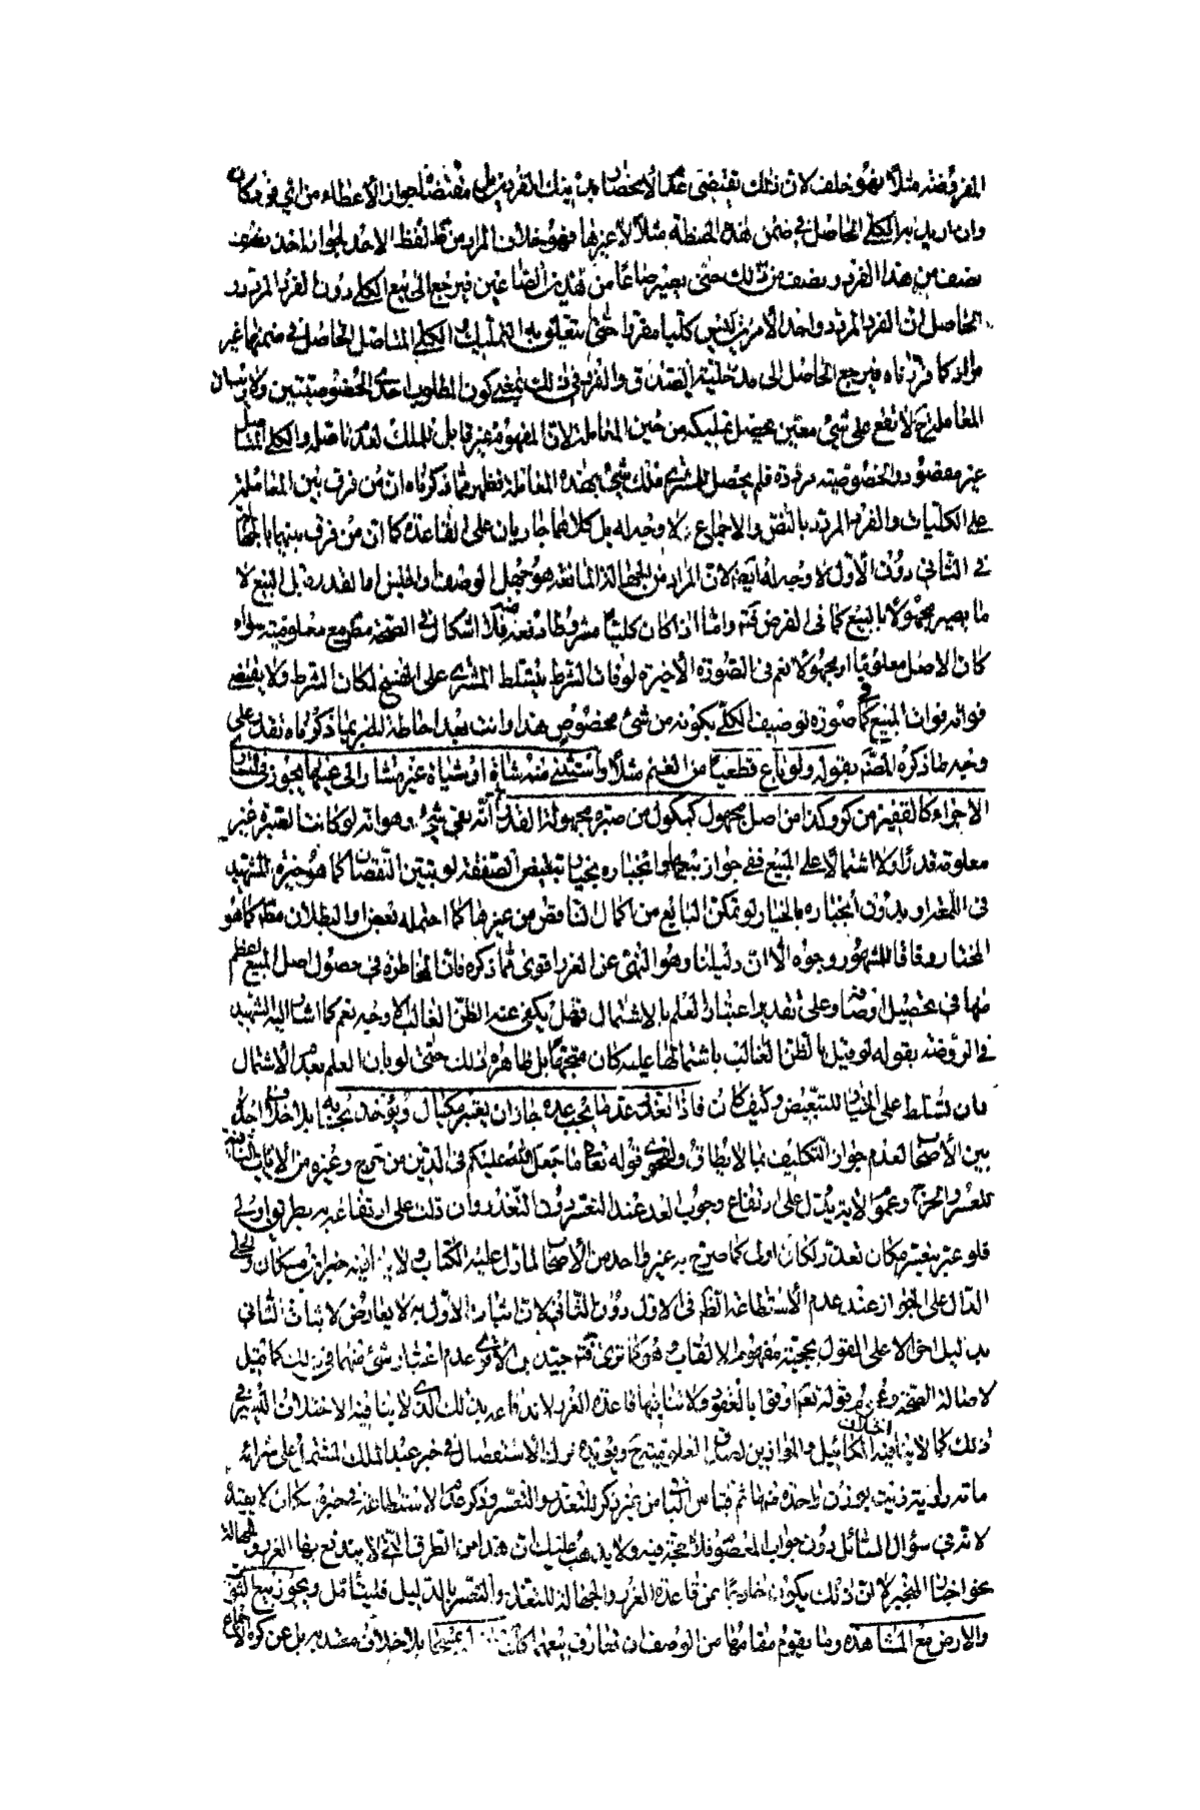 المفروضة مثلا فهو خلف لان ذلك يقتضى عدم الانحصار بين بينك الفردين مقتضا جواز الاعطاء من اي فرد كان
وان اريد به الكلي الحاصل في ضمن هذه الحنطة مثلا لا غيرها فهو خلاف المراد من لفظ الاحد لجواز اخذ نصف
نصف من هذا الفرد و نصف من ذلك حتى يصير صاعا من هذين الصاعين فيرجع الى بيع الكلي دون الفرد المردد و
الحاصل ان الفرد المردد واحد الامرين ليس كليا مقررا حتى يتعلق به التمليك و الكلي المتاصل الحاصل في ضمنها غير
مراد كما قررناه فيرجع الحاصل الى مدخلية الصدق والفرد في ذلك بمعنى كون المطلوب احدى الخصوصيتين ولا
المعاملة ح لا تقع على شئ معين يحصل تمليكه من حين المعاملة لان المفهوم غير قابل للملك لعدم تاصله و الكلي المتاصل
غير مقصود و الخصوصية مرددة فلم يحصل للمشترى ملك شئ بهذه المعاملة فظهر مما ذكرناه ان من فرق بين المعاملة
على الكليات و الفرد المردد بالنص والاجماع لا وجه له بل كلاهما جاريان على القاعدة كما ان من فرق بينهما بالجهالة
في الثاني دون الاول لا وجه له ايضا لان المراد من الجهالة المانعة هو جهل الوصف والجنس او القدر قبل البيع لا
ما يصير مجهولا بالبيع كما فى الفرض ثم واما اذا كان كليا مشروطا دفعه فلا اشكال في الصحة مطلقا مع معلوميته سواء
كان الاصل معلوما او مجهولا نعم فى الصورة الاخيرة لو فات الشرط يتسلط المشترى على الفسخ لمكان الشرط ولا يقتضى
فواته فوات المبيع كما في صورة توصيف الكلي بكونه من شئ مخصوص هذا وانت بعد احاطة الخبر بما ذكرناه تقدر على
وجه ما ذكره المصنف بقوله ولو باع قطعيا من الغنم مثلا واستثنى منه شاة او شياة غير مشار الى عينها يجوز في المتساوي
الاجزاء كالقفيز من كر وكذا من اصل مجهول كمكوك من صبرة مجهولة القدر انه بقى شئ وهو انه لو كانت الصبرة غير
معلومة قدرا ولا اشتمالا على المبيع ففي جواز بيعها و انجباره بخيار تبعيض الصفقة لو تبين النقصان كما هو خيرة الشهيد
فى اللمعة او بدون انجباره بالخيار لو تمكن البايع من اكمال الناقص من غيرها كما احتمله بعض او البطلان مطلقا كما هو
المختار وفاقا للمشهور وجوه الا ان دليلنا وهو النهى عن الغرر اقوى مما ذكره فان المخاطرة في حصول اصل المبيع اعظم
منها في تحصيل اوصافه وعلى تقدير اعتبار العلم بالاشتمال فهل يكفى عنه الظن الغالب الاوجه نعم كما اشار اليه الشهيد
في الروضة بقوله لو قيل بالظن الغالب باشتمالها عليه كان متجها بل ظاهره ذلك حتى لو بان العلم بعدم الاشتمال
فان تسلط على الخيار للتبعيض وكيف كان فاذا تعذر عد ما يجب عده جاز ان يعتبر مكيال و يؤخذ بحسابه بلا خلاف اجده
بين الاصحاب لعدم جواز التكليف بما لا يطاق و لفحوى قوله تعالى ما جعل الله عليكم في الدين من حرج وغيره من الايات النافية
للعسر والحرج وعموم الاية يدل على ارتفاع وجوب العد عند التعسر دون التعذر وان دلت على ارتفاعه به بطريق اولى
فلو عبر بتعسر مكان تعذر لكان اولى كما صرح به غير واحد من الاصحاب لما دل عليه الكتاب و الحلبي
الدال على الجواز عند عدم الاستطاعة الظاهر في الاول دون الثاني لان اثبات الاول به لا يعارض لاثبات الثاني
بدليل اخر الا على القول بحجية مفهوم الالقاب وهو كما ترى ثم عدم اعتبار شئ منهما في ذلك كما قيل
لاصالة الصحة و عموم قوله تعالى اوفوا بالعقود ولا تنافيها قاعدة الغرر لاندفاعه بذلك لا ينافيه الاختلاف اليسير في
ذلك كما لا ينافيه اختلاف المكائيل و الموازين لصدق المعلومية ح ويؤيده ترك الاستفصال في خبر عبد الملك المشتمل على شرائه
مائة راوية زيت بوزن واحدة منها ثم قياس الباقى من غير ذكر للتعذر والتعسر وذكر عدم الاستطاعة في خبر لا يقيده
لانه في سؤال السائل دون جواب المعصوم فلا حجة فيه ولا يذهب عليك ان هذا من الطرق التي لا يندفع بها الغرر والجهالة
نحو اخبار المخبر لان ذلك يكون خارجا عن قاعدة الغرر والجهالة للتعذر والتعسر بالدليل فليتامل ويجوز بيع الثوب
والارض مع المشاهدة وما يقوم مقامها من الوصف ان تعارف بيعهما بلا خلاف معتد به بل عن كره الاجماع